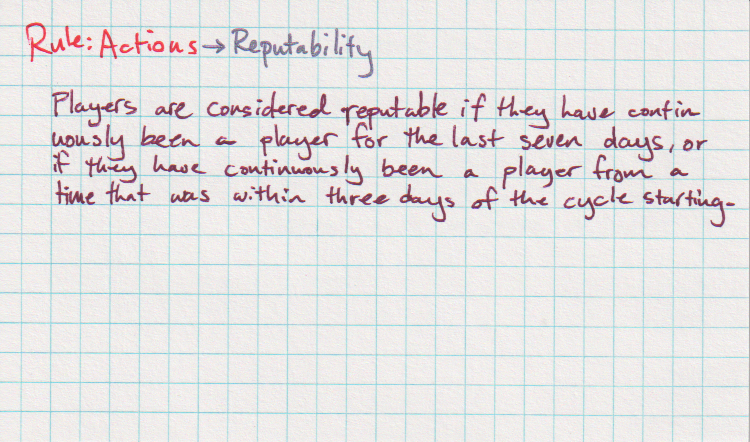 Rule: Actions → Reputability
Players are considered reputable if they have contin
uously been a player for the last seven days, or
if they have continuously been a player from a
time that was within three days of the cycle starting.